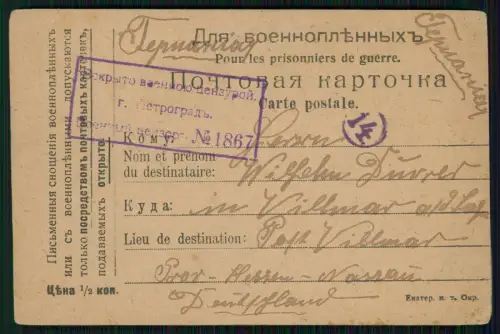 Германия
Для военноплѣнныхъ
Германия
Pour les prisonniers de guerre.
Почтовая карточка
Carte postale.
Письменныя сношенія военноплѣнныхъ
или съ военноплѣнными допускаются
только посредствомъ почтовыхъ карточекъ,
подаваемыхъ открыто.
Вскрыто военною цензурой.
г. Петроградъ.
Военный цензоръ № 1867
14
Кому: Herrn
Nom et prénom
du destinataire: Wilhelm
Куда: in Villmar a/d Lahn
Lieu de destination: Post Villmar
Prov- Hessen- Nassau
Цѣна ½ коп.
Deutschland
Екатер. и. т. Окр.